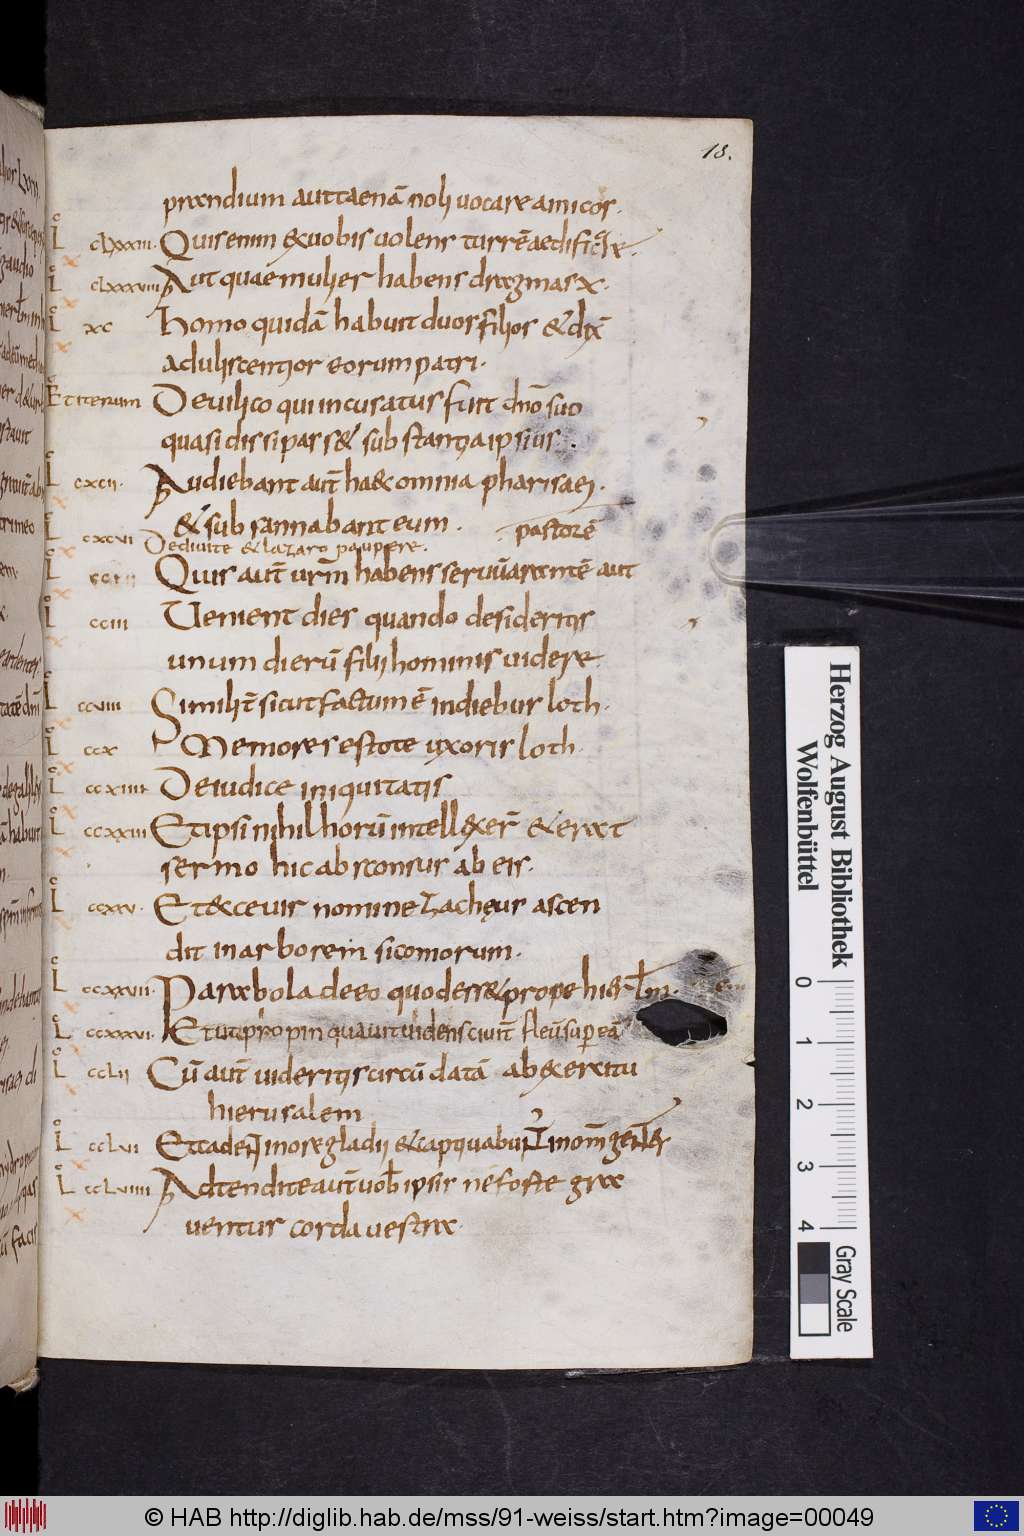 18.
prandium aut caenā noli uocare amicos.
L clxxxiii. Quis enim ex uobis uolens turrē aedificare.
L clxxxviii Aut quae mulier habens dragmas x.
L xc Homo quidā habuit duos filios & dix̄
aduliscentior eorum patri.
Et iterum De uilico qui incusatus fuit dn̄o suo
quasi dissipass& substantia ipsius.
L cxcii. Audiebant aut̄ haec omnia pharisaei.
& subsannabant eum. pastorē
L cxcvi De diuite & lazaro paupere.
L Quis aut̄ ur̄m habens seruū arantē aut
L cciii Uenient dies quando desideretis
unum dierū filii hominis uidere
L ccviiii Similit̄ sicut factum ē in diebus loth.
L ccx Memores estote uxoris loth.
L ccxiiii De iudice iniquitatis
L ccxxiii Et ipsi nihil horū intellexer̄ & erat
sermo hic absconsus ab eis.
L ccxxv. Et ecce uir nomine Zachęus ascen
dit in arborem sicomorum.
L ccxxvii. Parabola de eo quod ess& prope hierl̄m.
L ccxxxvi. Et ut propinquauit uidens ciuit̄ fleū sup eā
L cclii Cū aut̄ uideritis circūdatā ab exercitu
hierusalem
L cclvi Et cadent in ore gladii & captiuabunt in om̄ gentes
L cclviiii Adtendite aut̄ uob ipsis ne foste gra
uentur corda uestra.
Herzog August Bibliothek
Wolfenbüttel
0 1 2 3 4
Gray Scale
© HAB http://diglib.hab.de/mss/91-weiss/start.htm?image=00049